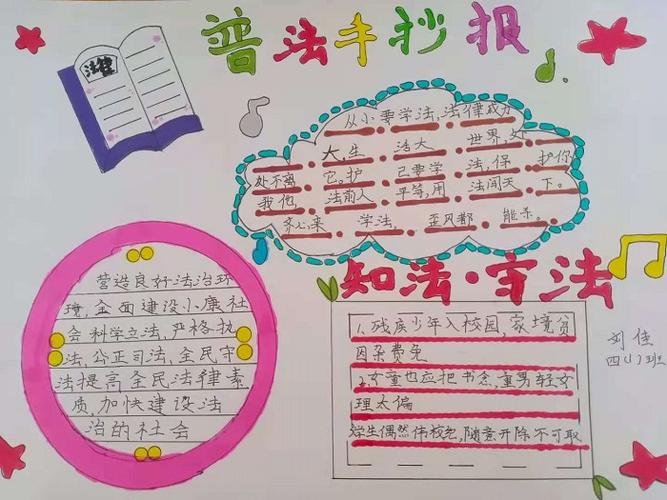 普法手抄报
法律
从小要学法,法律威力
大,生活大世界,处
处不离它。护己要学法,保护你
我他,法前人平等,用法闯天下。
齐心来学法,歪风都能杀。
知法·守法
营造良好法治环
境,全面建设小康社
会科学立法,严格执
法,公正司法,全民守
法提高全民法律素
质,加快建设法
治的社会
1、残疾少年入校园,家境贫
因杂费免
2、女童也应把书念,重男轻女
理太偏
学生偶然伤校纪,随意开除不可取
刘佳
四(1)班